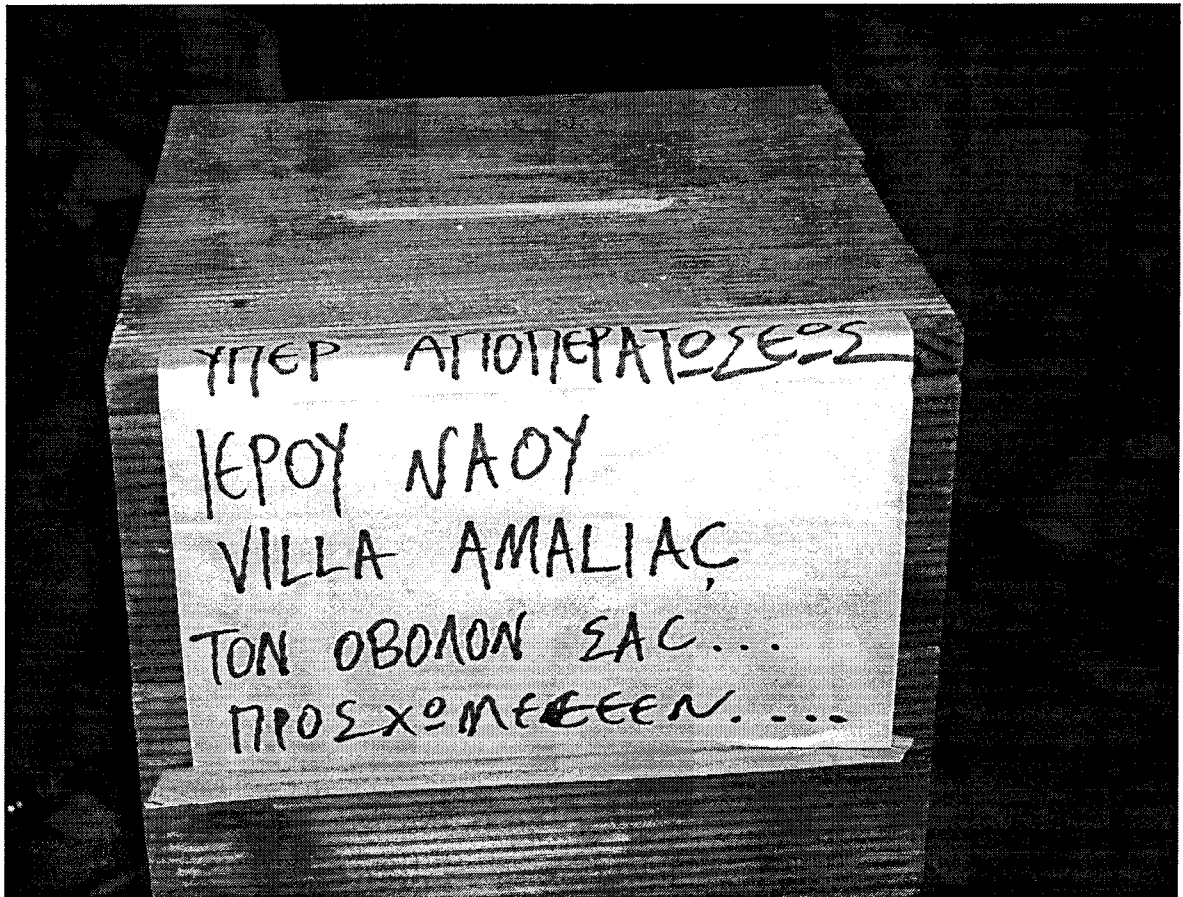 ΥΠΕΡ ΑΠΟΠΕΡΑΤΩΣΕΩΣ
ΙΕΡΟΥ ΝΑΟΥ
VILLA AMALIAÇ
ΤΟΝ ΟΒΟΛΟΝ ΣΑC...
ΠΡΟΣΧΩΜΕΕΕΕΕΝ....